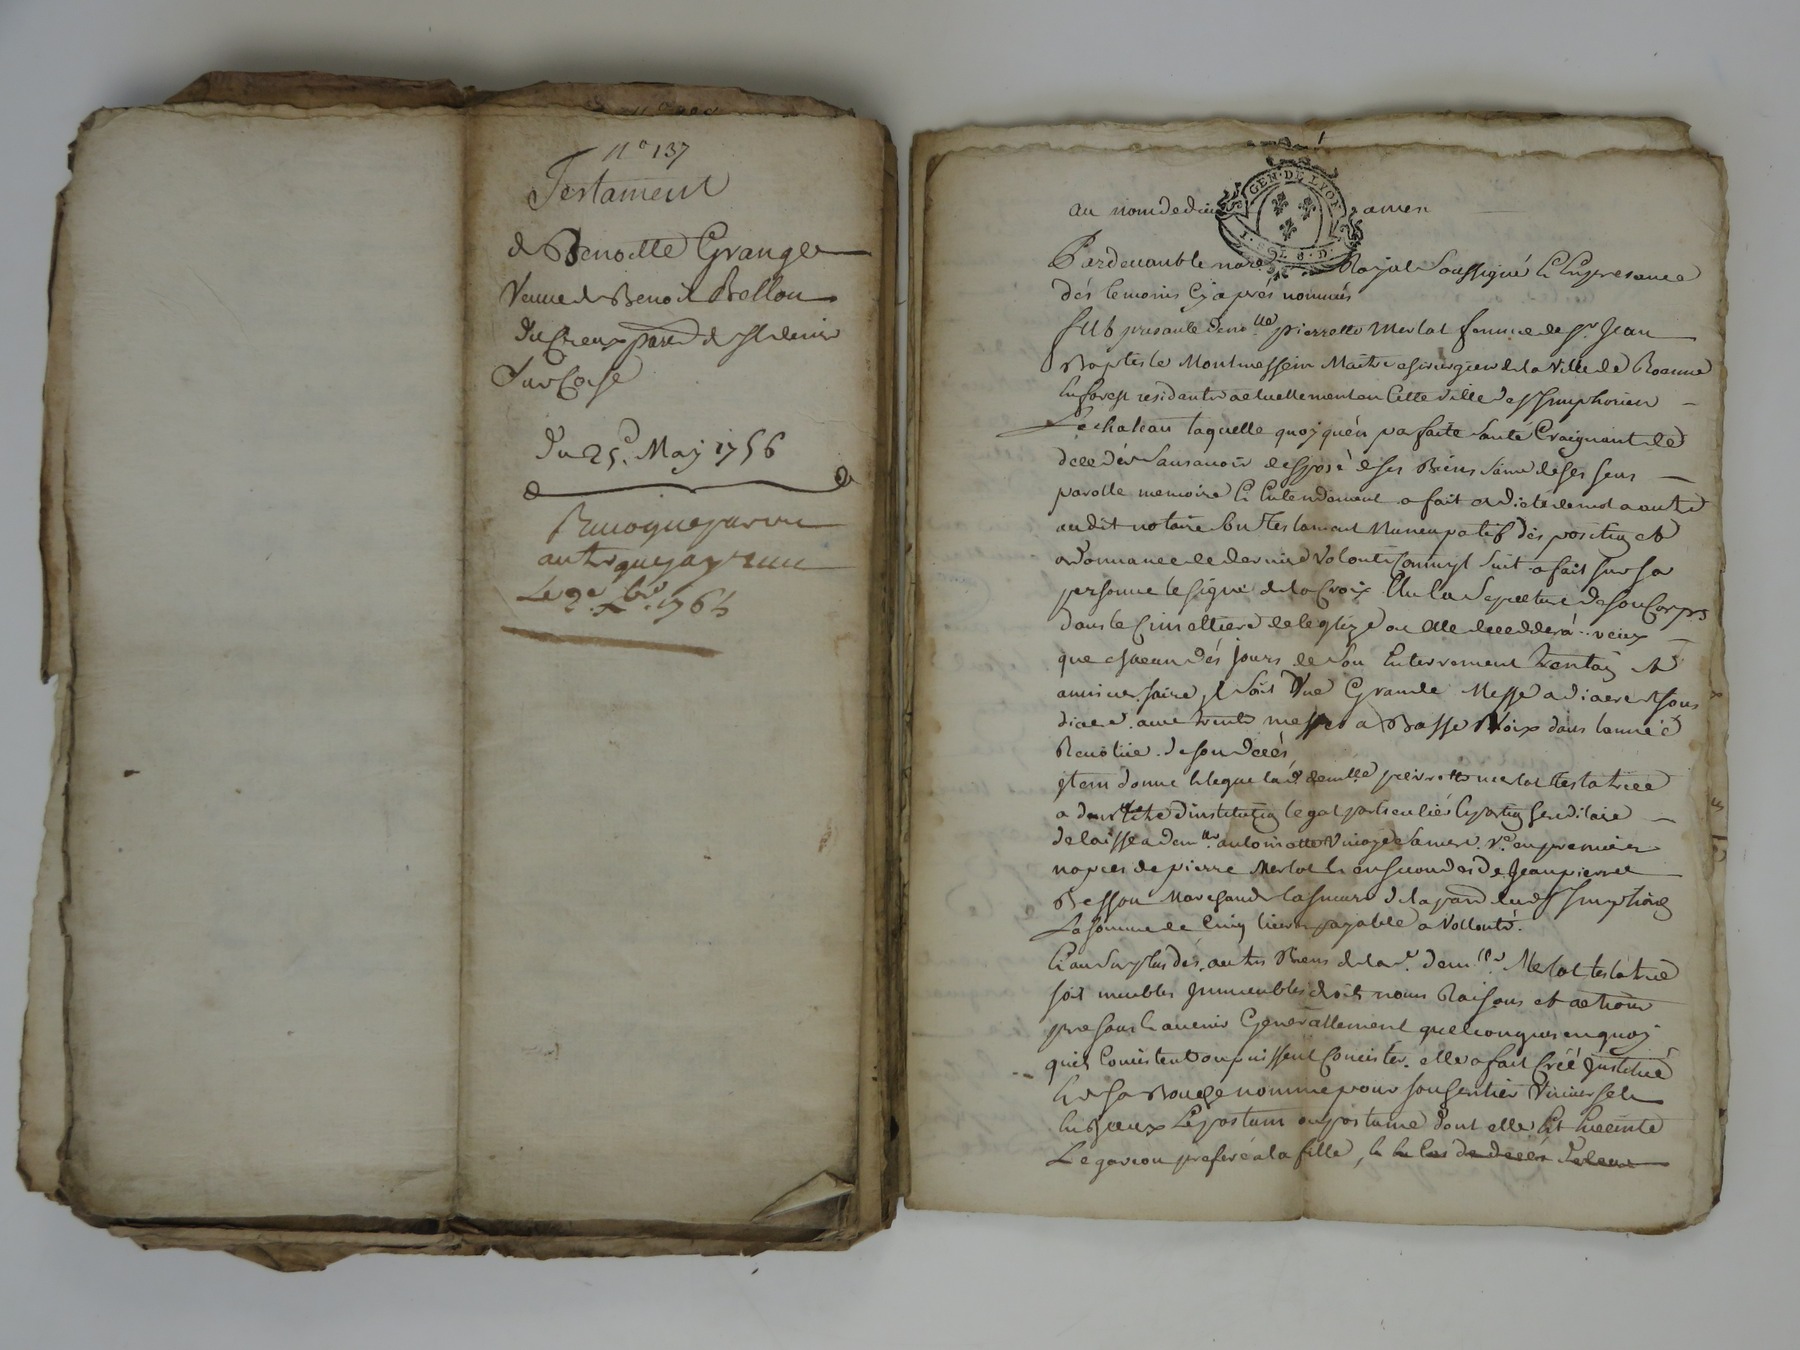 N.º 137
Testament
de Benoitte Grange
Veuve de Benoit Bellon
du Creux parr. de St denis
Sur Coise
Du 25.e May 1756
Revoqué par un
autre que j'ay reçu
Le 2e Xbre 1764
GEN. DE LYON
au nom de dieu amen
Pardevant le nore Royal Soussigné & En presence
dés temoins Cy aprés nommés
fUt presante demlle pierrette Merlat femme de Sr Jean
Baptiste Montmessin Maitre chirurgien de la Ville de Roanne
En forest residante actuellement en Cette Ville de St Simphorien
Le chateau laquelle quoyqu'en parfaite Santé Craignant de
deceder Sans avoir dessposé de Ses Biens Saine de Ses Sens
parolle memoire & Entendement a fait et dicté de mot a autre
audit notaire Son Testament Nuncupatif disposition et
ordonnance de derniere Volonté Comm'il Suit a fait Sur Sa
personne le Signe de la Croix Elu la Sepulture de Son Corps
dans le Cimettiere de leglize ou elle deceddera veux
que chacun dés jours de Son Enterrement trentain et
anniversaire jl Soit dite Grande Messe a diacre et Sous
diacre avec trente messes a Basse Voix dans l'année
Revolue de Son decés
jtem donne & legue lad. demlle pierrette merlat testatrice
a droit & titre d'institution legat particulier & portion hereditaire
delaisse a demlle antoinette Sa mere Ve en premieres
nopces de pierre Merlat & en Secondes de Jean pierre
Besson Marchand de la parr. dud. St Simphorien
La Somme de Cinq livres payable a Vollonté.
Et au Surplus dés autres Biens de lad. demlle Merlat testatrice
Soit meubles Jmmeubles droits noms Raisons et actions
presents & avenir Generallement quelconques en quoy
quils Consistent ou puissent Consister elle a fait Créé Jnstitué
& de Sa Bouche nommé pour Son heritier Universel
Le postum ou postume dont elle Est Enceinte
Le garcon preferé a la fille, &